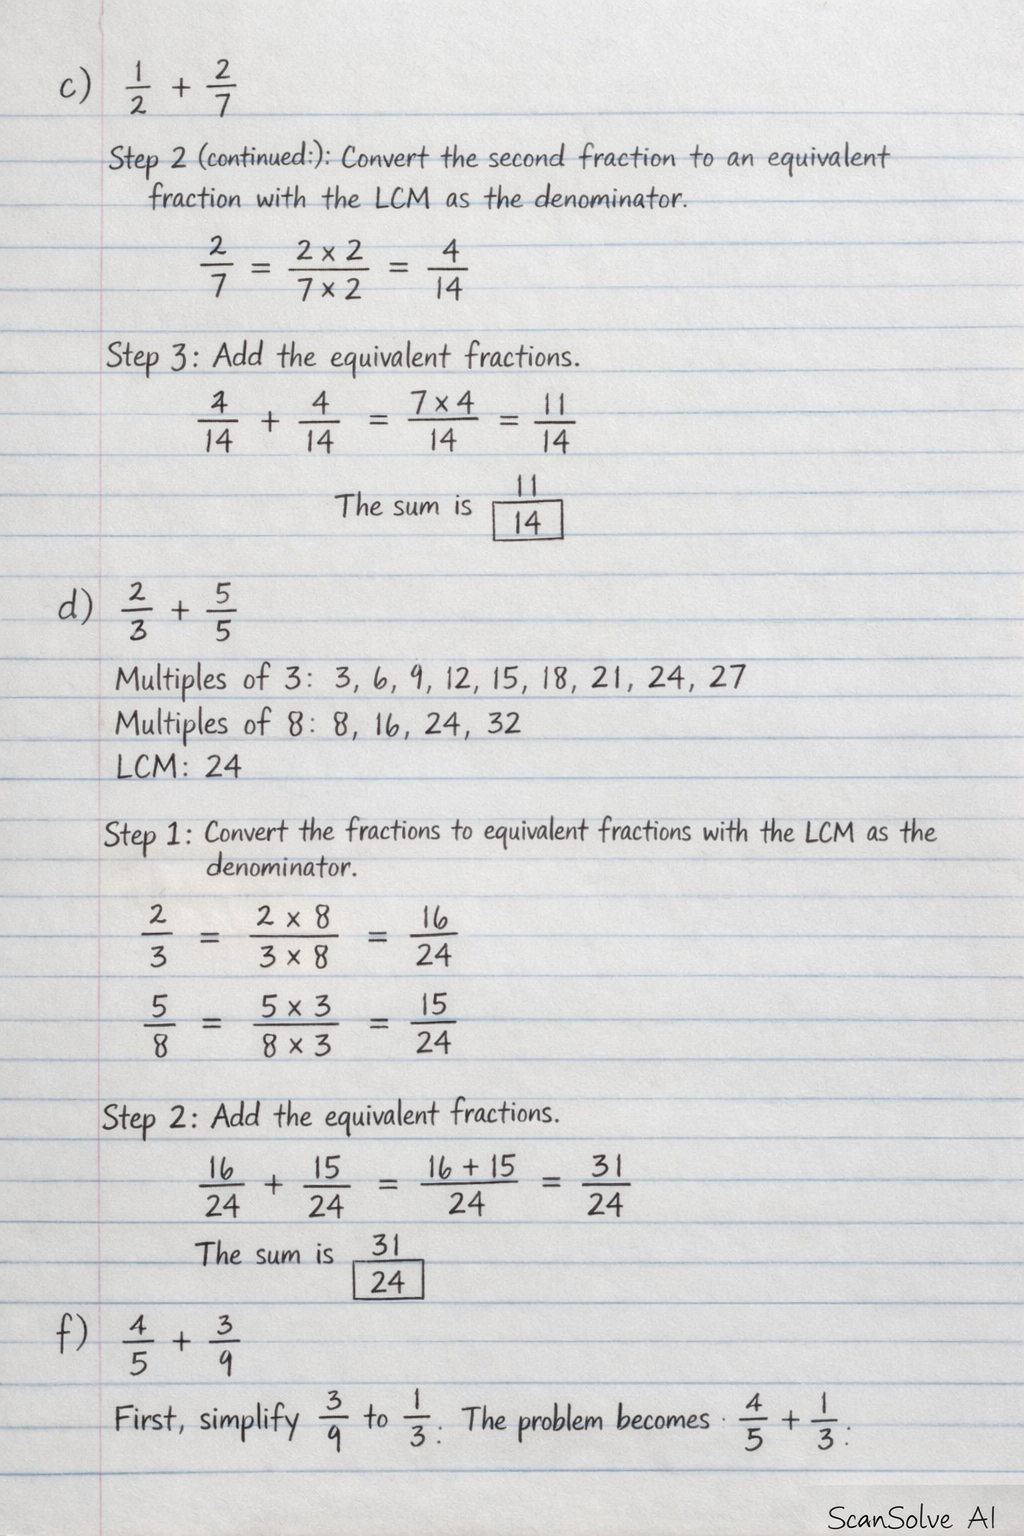 c) 1/2 + 2/7
Step 2 (continued:): Convert the second fraction to an equivalent
fraction with the LCM as the denominator.
2/7 = 2 × 2/7 × 2 = 4/14
Step 3: Add the equivalent fractions.
4/14 + 4/14 = 7 × 4/14 = 11/14
The sum is 11/14
d) 2/3 + 5/5
Multiples of 3: 3, 6, 9, 12, 15, 18, 21, 24, 27
Multiples of 8: 8, 16, 24, 32
LCM: 24
Step 1: Convert the fractions to equivalent fractions with the LCM as the
denominator.
2/3 = 2 × 8/3 × 8 = 16/24
5/8 = 5 × 3/8 × 3 = 15/24
Step 2: Add the equivalent fractions.
16/24 + 15/24 = 16 + 15/24 = 31/24
The sum is 31/24
f) 4/5 + 3/9
First, simplify 3/9 to 1/3. The problem becomes 4/5 + 1/3.
ScanSolve AI